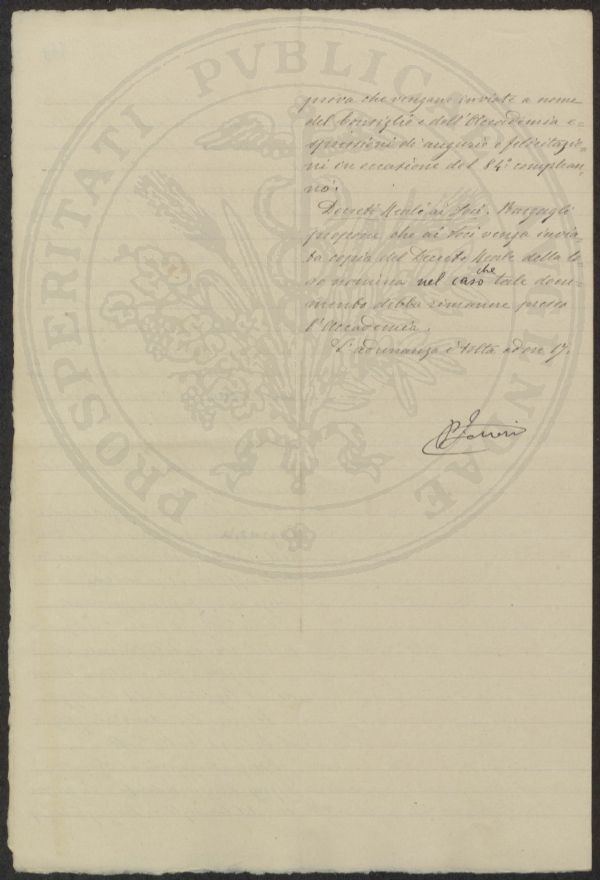 PROSPERITATI PVBLICAE AVGENDAE
prova che vengano inviate a nome
del Consiglio e dell'Accademia e=
spressioni di augurio e felicitazio=
ni in occasione del 84° complean=
no.
Decreti Reali ai Soci. Bazzagli
propone che ai Soci venga invia=
ta copia del Decreto Reale della lo=
ro nomina nel caso che tale docu=
mento debba rimanere presso
l'Accademia.
L'adunanza è tolta ad ore 17.